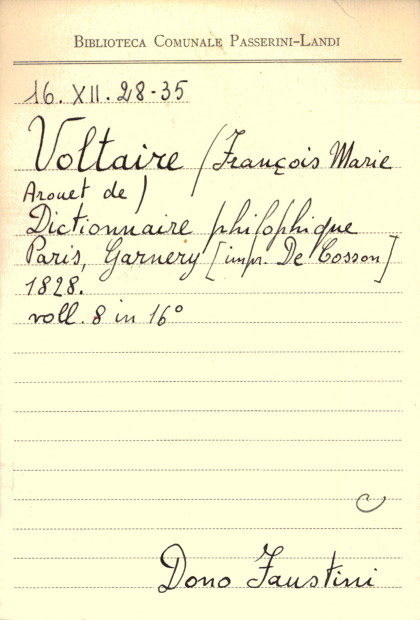 BIBLIOTECA COMUNALE PASSERINI-LANDI
16. XII. 28-35
Voltaire (François Marie
Arouet de)
Dictionnaire philophique
Paris, Garnery [impr. De Cosson]
1828.
voll. 8 in 16°
C
Dono Faustini